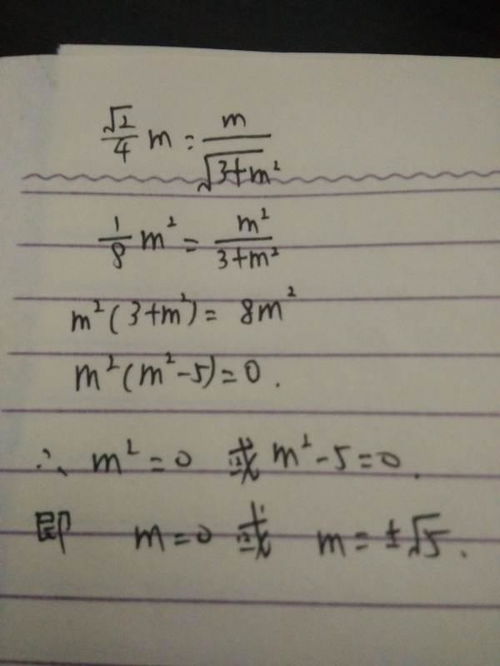 √2/4 m = m/√(3+m²)
1/8 m² = m²/(3+m²)
m²(3+m²) = 8m²
m²(m²-5)=0.
∴ m²=0 或 m²-5=0.
即 m=0 或 m=±√5.